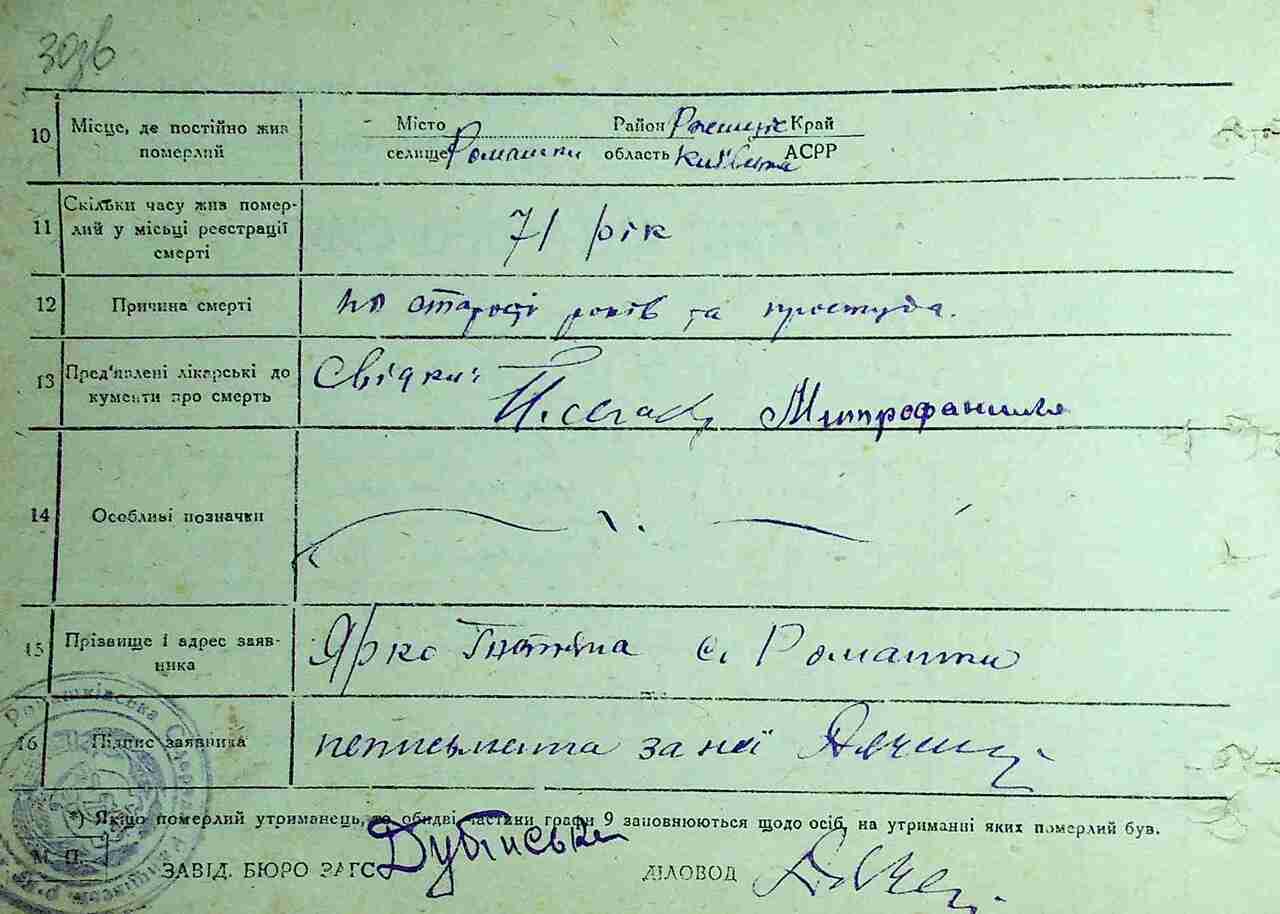 10 Місце, де постійно жив Місто Район Край
померлий селище Ромашки область Київська АСРР
11 Скільки часу жив помер-
лий у місьці реєстрації 71 рік
смерті
12 Причина смерті по старості років та простуда.
13 Пред'явлені лікарські до Свідки:
кументи про смерть Митрофанишя
14 Особливі позначки
15 Прізвище і адрес заяв- Ярко Тнтяна с. Ромашки
ника
16 Підпис заявника неписьмена за неї
*) Якщо померлий утриманець, то обидві частини графи 9 заповнюються щодо осіб, на утриманні яких померлий був.
М. П.
ЗАВІД. БЮРО ЗАГС ДІЛОВОД